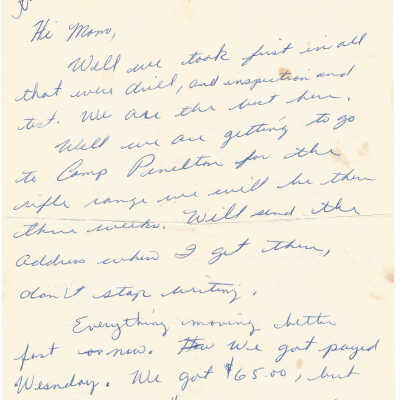 Hi Mom,
Well we took first in all
that were drill, and inspection and
test. We are the best here.
Well we are getting to go
to Camp Penelton for the
rifle range we will be there
three weeks. Will send the
address when I get there,
don't stop writing.
Everything moving better
fast now. We got payed
Wesnday. We got $65.00, but